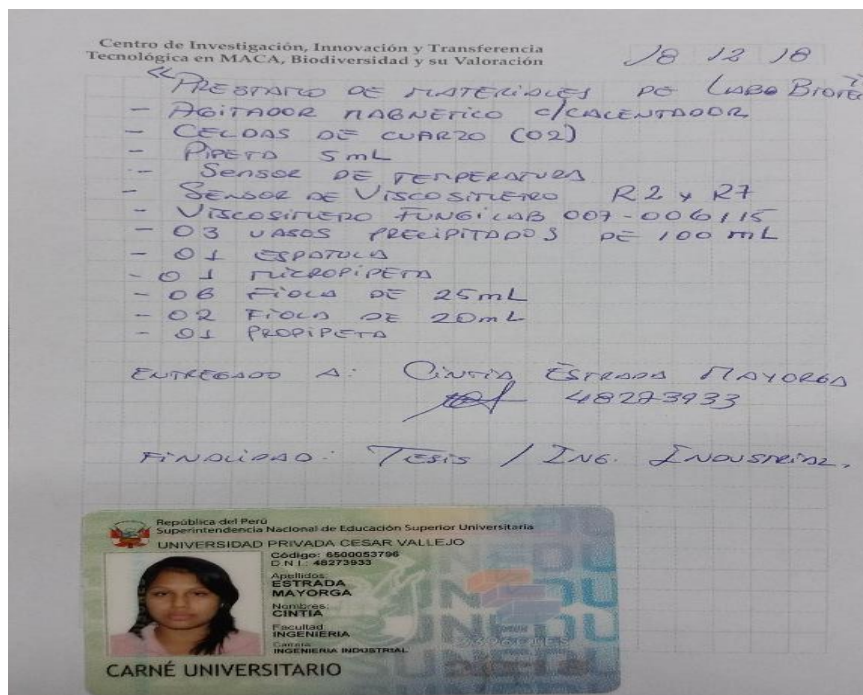 Centro de Investigación, Innovación y Transferencia
Tecnológica en MACA, Biodiversidad y su Valoración
18 12 18
"PRESTAMO DE MATERIALES DE LABO BIOTEC
- AGITADOR MAGNETICO C/CALENTADOR
- CELDAS DE CUARZO (02)
- PIPETA 5mL
- SENSOR DE TEMPERATURA
- SENSOR DE VISCOSIMETRO R2 y R7
- VISCOSIMETRO FUNGILAB 007-006115
- 03 VASOS PRECIPITADOS DE 100 mL
- 01 ESPATULA
- 01 MICROPIPETA
- 06 FIOLA DE 25mL
- 02 FIOLA DE 20mL
- 01 PROPIPETA
ENTREGADO A: CINTIA ESTRADA MAYORGA
48273933
FINALIDAD: TESIS / ING. INDUSTRIAL.
República del Perú
Superintendencia Nacional de Educación Superior Universitaria
UNIVERSIDAD PRIVADA CESAR VALLEJO
Código: 6500053796
D.N.I.: 48273933
Apellidos:
ESTRADA
MAYORGA
Nombres:
CINTIA
Facultad
INGENIERIA
Carrera
INGENIERIA INDUSTRIAL
CARNÉ UNIVERSITARIO